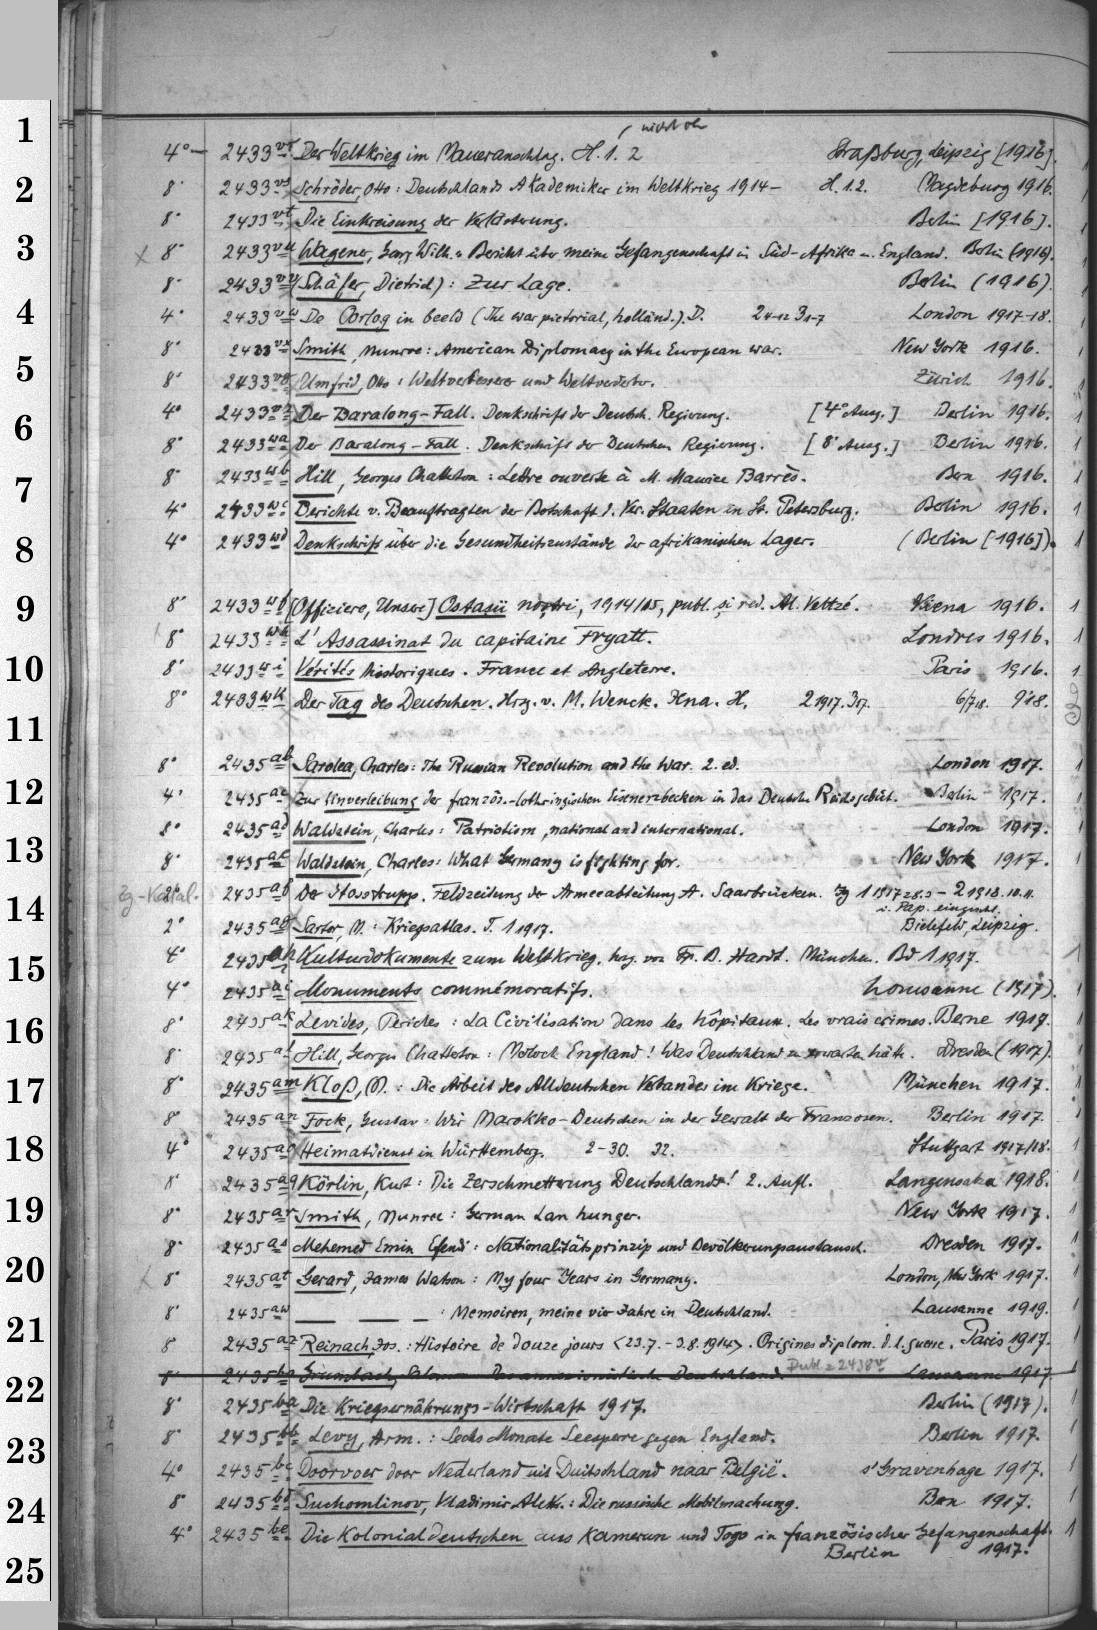 nicht vh
1
4° — 2433 vr Der Weltkrieg im Maueranschlag. H. 1. 2 Straßburg, Leipzig [1916].
2
8° 2433 vs Schröder, Otto: Deutschlands Akademiker im Weltkrieg 1914– H. 1.2. Magdeburg 1916.
8° 2433 vt Die Einkreisung der Berlin [1916].
3
x 8° 2433 vu Wagener, Georg Wilh.: Bericht über meine Gefangenschaft in Süd-Afrika u. England. Berlin (1916).
8° 2433 vv (Schäfer, Dietrich): Zur Lage. Berlin (1916).
4
4° 2433 vw De Oorlog in beeld (The war pictorial, holländ.). D. 2 4-12 3 1-7 London 1917-18.
8° 2433 vx Smith, Munroe: American Diplomacy in the European war. New York 1916.
5
8° 2433 vy Umfrid, Otto: Weltverbesserer und Weltverderber. Zürich 1916.
4° 2433 vz Der Baralong-Fall. Denkschrift der Deutsch. Regierung. [4° Ausg.] Berlin 1916.
6
8° 2433 wa Der Baralong-Fall. Denkschrift der Deutschen Regierung. [8° Ausg.] Berlin 1916.
8° 2433 wb Hill, Georges Chatterton: Lettre ouverte à M. Maurice Barrès. Bern 1916.
7
4° 2433 wc Berichte v. Beauftragten der Botschaft d. Ver. Staaten in St. Petersburg. Berlin 1916.
8
4° 2433 wd Denkschrift über die Gesundheitszustände der afrikanischen Lager. (Berlin [1916]).
9
8° 2433 wf [Offiziere, Unsere] Ostasii nostri, 1914/15, publ. şi red. Al. Veltzé. Viena 1916.
8° 2433 wh L'Assassinat du capitaine Fryatt. Londres 1916.
10
8° 2433 wi Vérités historiques. France et Angleterre. Paris 1916.
8° 2433 wk Der Tag des Deutschen. Hrsg. v. M. Wenck. Jena. H. 2 1917. 3 17. 6/7 18. 9 18.
11
8° 2435 ab Sarolea, Charles: The Russian Revolution and the War. 2. ed. London 1917.
12
4° 2435 ac Zur Einverleibung der französ.-lothringischen Eisenerzbecken in das Deutsche Reichsgebiet. Berlin 1917.
8° 2435 ad Waldstein, Charles: Patriotism, national and international. London 1917.
13
8° 2435 ae Waldstein, Charles: What Germany is fighting for. New York 1917.
Zg-Katal. 2435 af Der Stosstrupp. Feldzeitung der Armeeabteilung A. Saarbrücken. Jg 1 1917 28.3 – 2 1918. 10.11.
14
i. Pap. eingeschl.
2° 2435 ag Sartor, M.: Kriegsatlas. T. 1 1917. Bielefeld, Leipzig.
15
4° 2435 ah Kulturdokumente zum Weltkrieg. hrg. von Fr. B. Hardt. München. Bd 1 1917.
4° 2435 ai Monuments commémoratifs. Lousanne (1917).
16
8° 2435 ak Levides, Pericles: La Civilisation dans les hôpitaux. Les vrais crimes. Berne 1917.
8° 2435 al Hill, Georges Chatterton: Moloch England! Was Deutschland zu erwarten hätte. Dresden (1917).
17
8° 2435 am Kloß, M.: Die Arbeit des Alldeutschen Verbandes im Kriege. München 1917.
8° 2435 an Fock, Gustav: Wir Marokko-Deutschen in der Gewalt der Franzosen. Berlin 1917.
18
4° 2435 ao Heimatdienst in Württemberg. 2–30. 32. Stuttgart 1917/18.
8° 2435 aq Körlin, Kurt: Die Zerschmetterung Deutschlands! 2. Aufl. Langensalza 1918.
19
8° 2435 ar Smith, Munroe: German Lan hunger. New York 1917.
8° 2435 as Mehemed Emin Efendi: Nationalitätsprinzip und Bevölkerungsaustausch. Dresden 1917.
20
8° 2435 at Gerard, James Watson: My four Years in Germany. London, New York 1917.
8° 2435 aw — — — : Memoiren, meine vier Jahre in Deutschland. Lausanne 1919.
21
8° 2435 az Reinach, Jos.: Histoire de douze jours <23.7. – 3.8. 1914>. Origines diplom. d. l. guerre. Paris 1917.
Dubl = 2438
8° 2435 Grumbach, Salomon: Das annexionistische Deutschland. Lausanne 1917
22
8° 2435 ba Die Kriegsernährungs-Wirtschaft 1917. Berlin (1917).
8° 2435 bb Levy, Arm.: Sechs Monate Seesperre gegen England. Berlin 1917.
23
4° 2435 bc Doorvoer door Nederland uit Duitschland naar België. s'Gravenhage 1917.
8° 2435 bd Suchomlinov, Vladimir Aleks.: Die russische Mobilmachung. Bern 1917.
24
4° 2435 be Die Kolonialdeutschen aus Kamerun und Togo in französischer Gefangenschaft.
Berlin 1917.
25